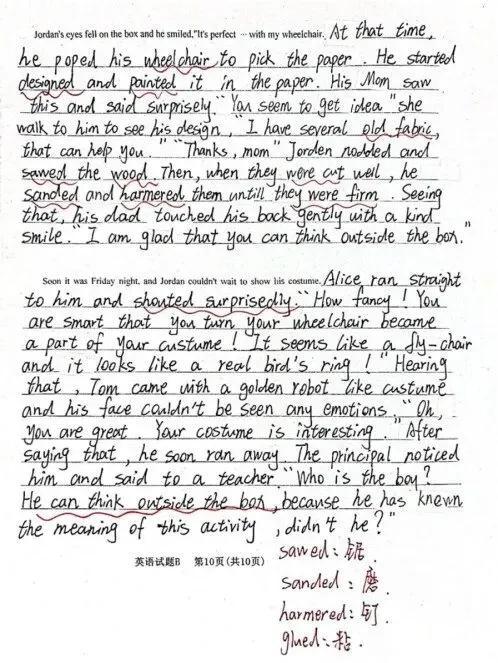 Jordan's eyes fell on the box and he smiled."It's perfect ··· with my wheelchair. At that time,
he poped his wheelchair to pick the paper. He started
designed and painted it in the paper. His Mom saw
this and said surprisely. "You seem to get idea "she
walk to him to see his design, "I have several old fabric,
that can help you." "Thanks, mom" Jorden nodded and
sawed the wood. Then, when they were cut well, he
sanded and harmered them untill they were firm. Seeing
that, his dad touched his back gently with a kind
smile. "I am glad that you can think outside the box."
Soon it was Friday night, and Jordan couldn't wait to show his costume. Alice ran straight
to him and shouted surprisedly. "How fancy! You
are smart that you turn your wheelchair became
a part of your custume! It seems like a fly-chair
and it looks like a real bird's ring!" Hearing
that, Tom came with a golden robot like custume
and his face couldn't be seen any emotions. "Oh,
you are great. Your costume is interesting." After
saying that, he soon ran away. The principal noticed
him and said to a teacher "Who is the boy?
He can think outside the box, because he has known
the meaning of this activity, didn't he?"
英语试题B 第10页(共10页)
sawed: 锯.
sanded: 磨
harmered: 钉.
glued: 粘.